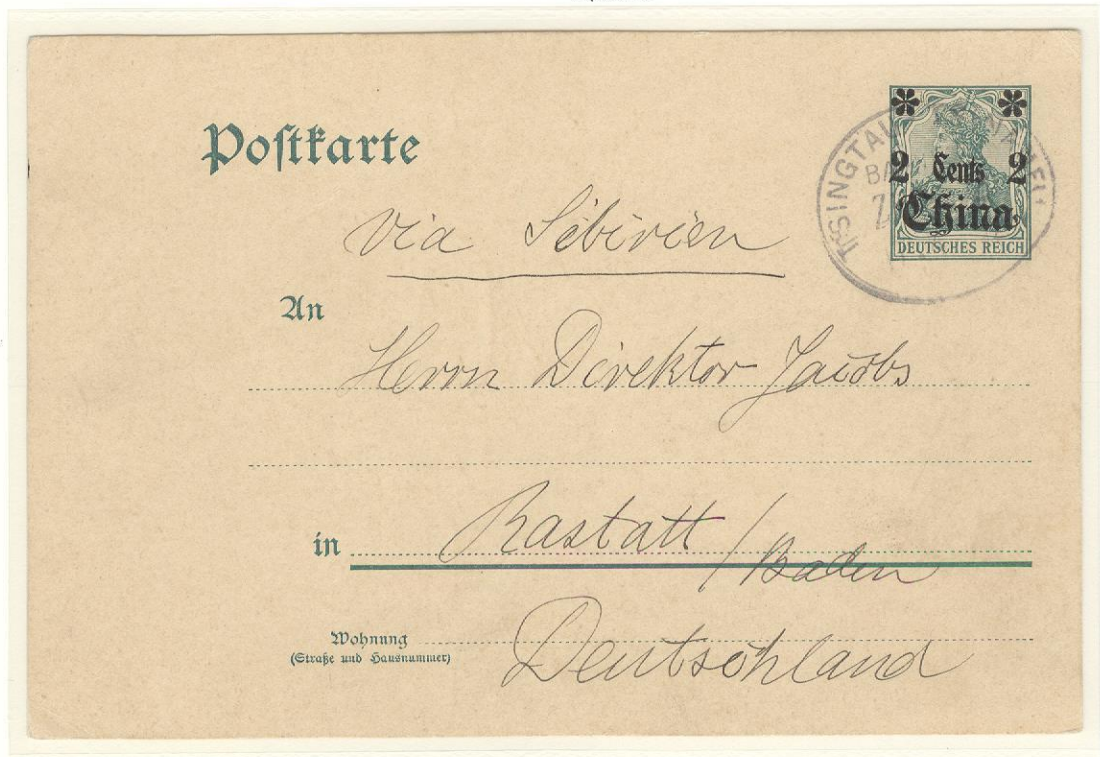 Postkarte
2 Cents 2
China
DEUTSCHES REICH
TSINGTAU
via Sibirien
An
Herrn Direktor Jacobs
in Rastatt / Baden
Wohnung
(Straße und Hausnummer)
Deutschland